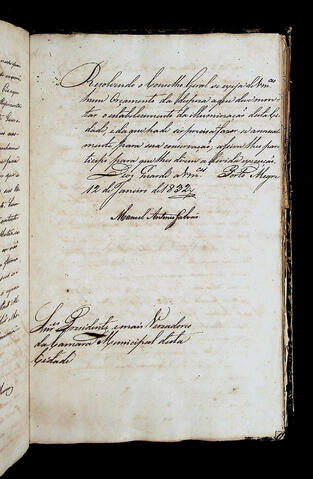 Resolvendo o Conselho Geral se exija de Vm.ces
hum Orçamento da despeza a que deve mon-
tar o estabelecimento da illuminação desta Ci-
dade, e da que ha de ser preciso fazer-se annual-
mente para sua conservação; assim lhes par-
ticipo para que lhe dêem a devida execução.
Deos Guarde a Vm.ces Porto Alegre
12 de Janeiro de 1832
Manoel Antonio Galvão
Snr.es Presidente, e mais Vereadores
da Camara Municipal desta
Cidade